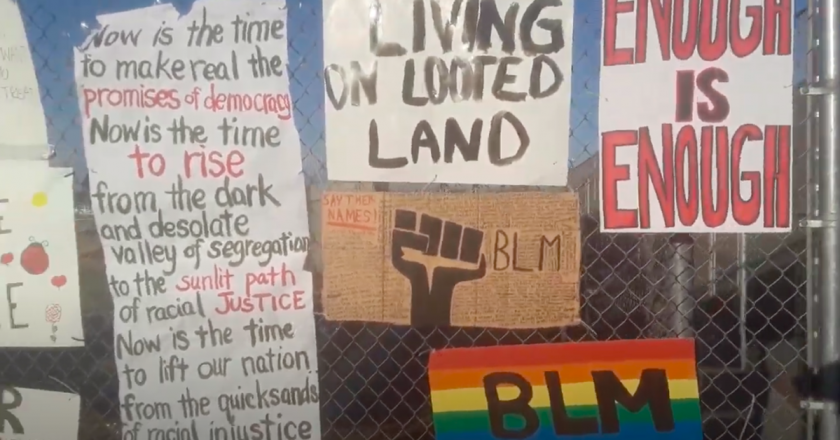 Now is the time
to make real the
promises of democracy
Now is the time
to rise
from the dark
and desolate
valley of segregation
to the sunlit path
of racial JUSTICE
Now is the time
to lift our nation
from the quicksands
of racial injustice
LIVING
ON LOOTED
LAND
SAY THEIR
NAMES!
BLM
BLM
ENOUGH
IS
ENOUGH
E
E
R